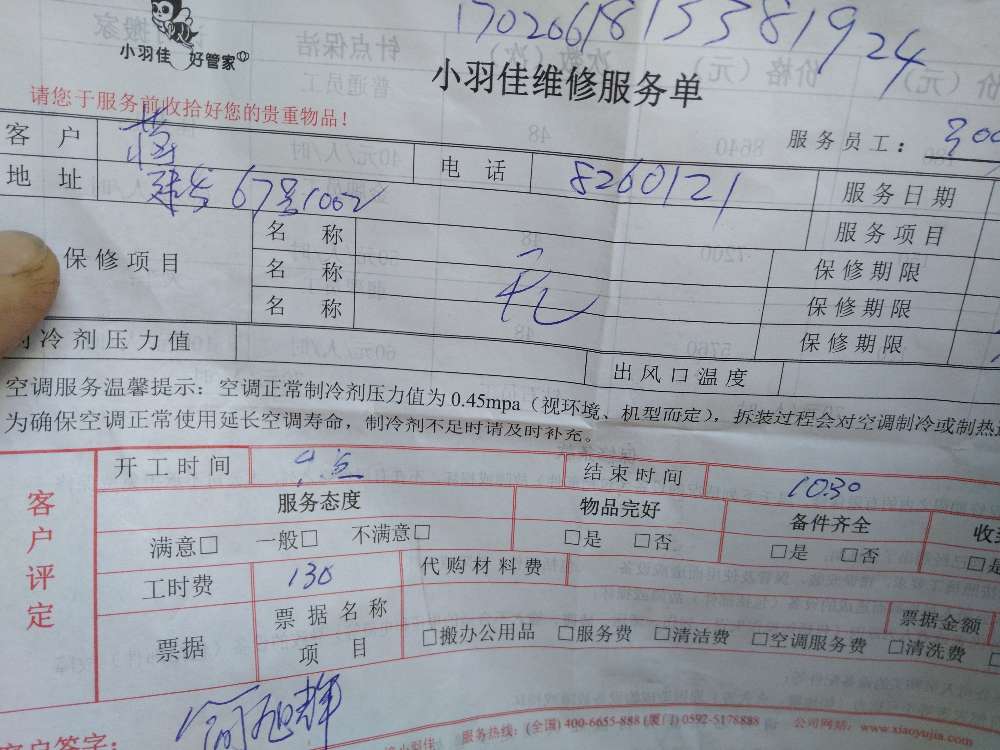 1702061815381924
小羽佳 好管家
小羽佳维修服务单
请您于服务前收拾好您的贵重物品！
服务员工：
客 户 蒋 电 话 8260121 服务日期
地 址 67号1002 服务项目
保修项目 名 称 保修期限
名 称 无 保修期限
名 称 保修期限
制冷剂压力值 出风口温度
空调服务温馨提示：空调正常制冷剂压力值为 0.45mpa（视环境、机型而定），拆装过程会对空调制冷或制热
为确保空调正常使用延长空调寿命，制冷剂不足时请及时补充。
客户评定
开工时间 结束时间 10:30
服务态度 物品完好 备件齐全 收
满意□ 一般□ 不满意□ □是 □否 □是 □否 □是
工时费 130 代购材料费
票据 票 据 名 称 票据金额
项 目 □搬办公用品 □服务费 □清洁费 □空调服务费 □清洗费
客户签字：
小羽佳 服务热线：(全国) 400-6655-888 (厦门) 0592-5178888 公司网站：www.xiaoyujia.com